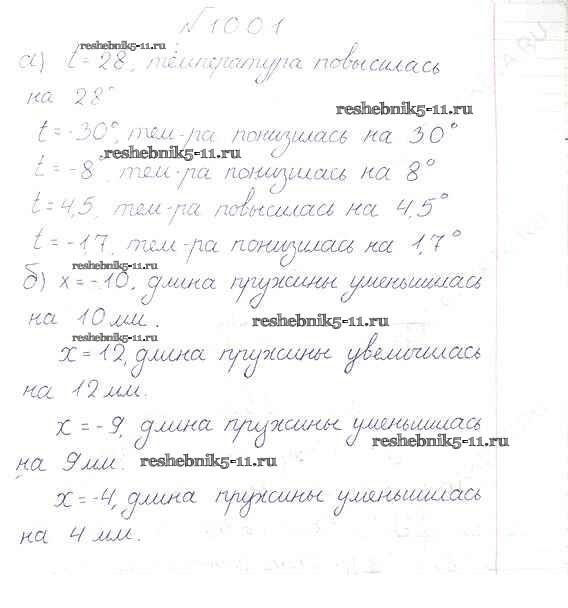 №1001
reshebnik5-11.ru
а) t=28, температура повысилась
на 28°
reshebnik5-11.ru
t=-30°, тем-ра понизилась на 30°
reshebnik5-11.ru
t=-8, тем-ра понизилась на 8°
t=4,5, тем-ра повысилась на 4,5°
t=-17, тем-ра понизилась на 1,7°
reshebnik5-11.ru
б) x=-10, длина пружины уменьшилась
на 10 мм.
reshebnik5-11.ru
reshebnik5-11.ru
x=12, длина пружины увеличилась
на 12 мм.
x=-9, длина пружины уменьшилась
reshebnik5-11.ru
на 9 мм.
reshebnik5-11.ru
x=-4, длина пружины уменьшилась
на 4 мм.